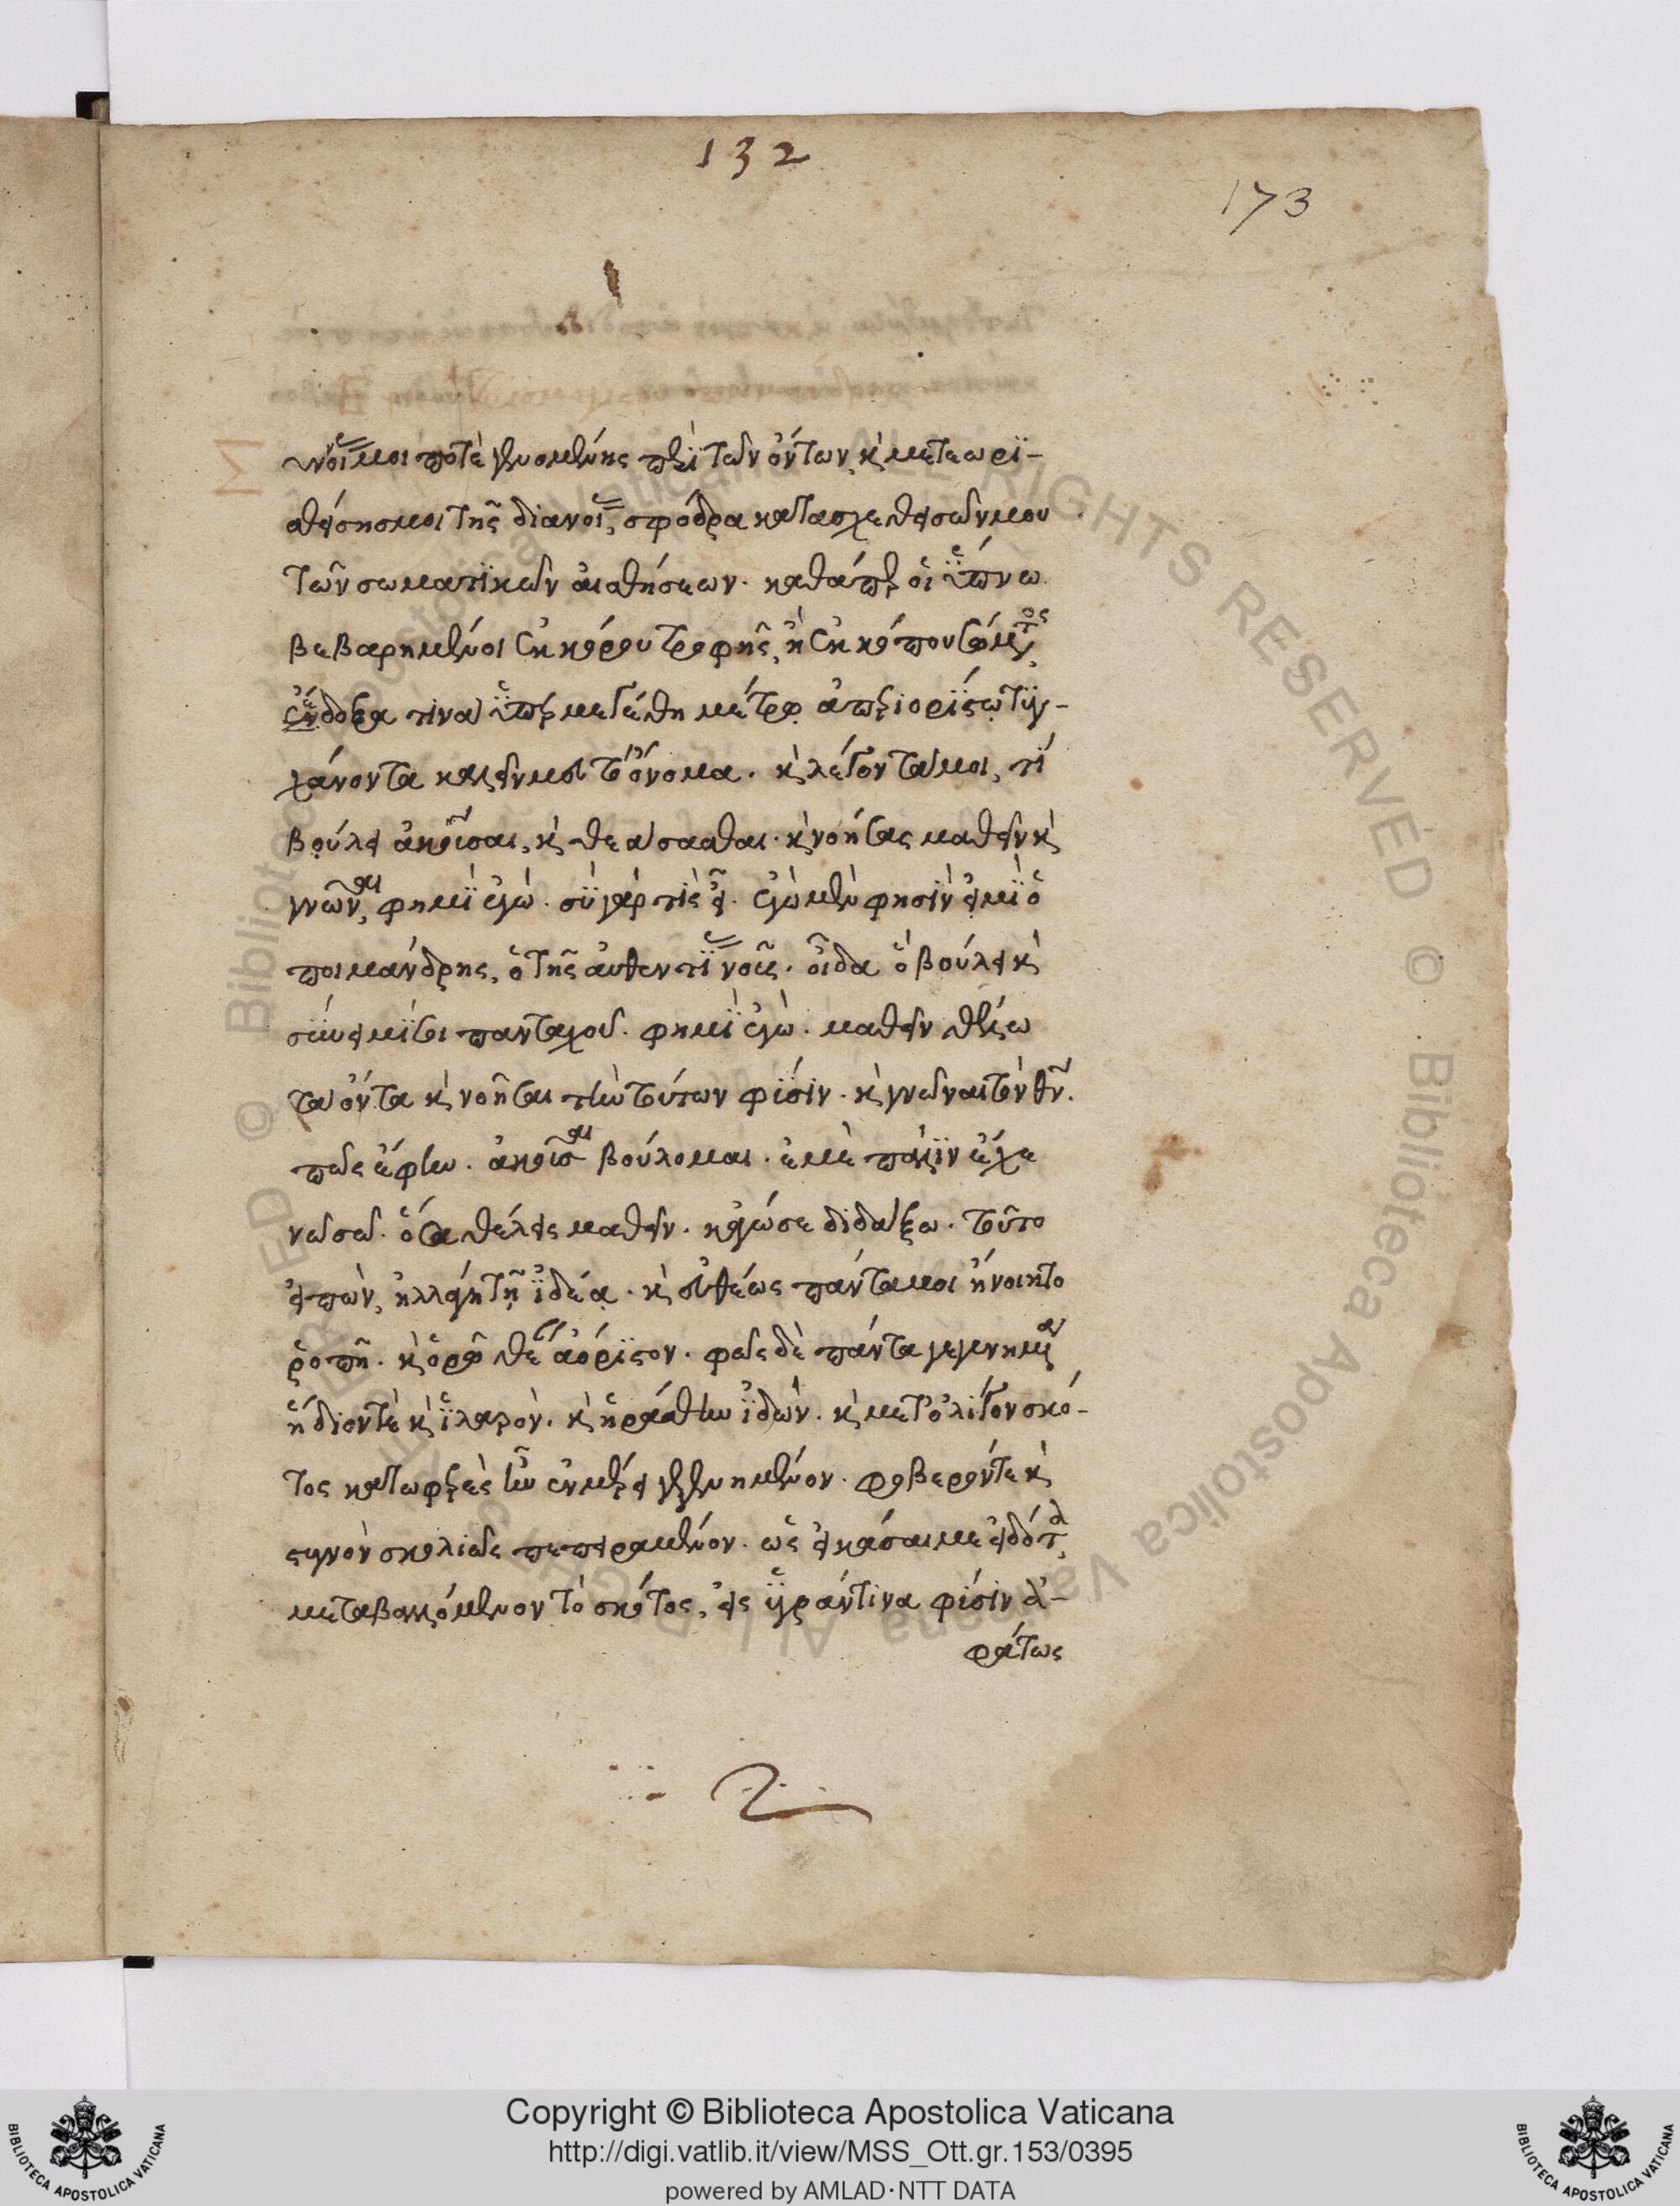 132
173
ννοίας μοι ποτὲ γενομένης περὶ τῶν ὄντων, κὶ μετεωρι-
σθείσης μοι τῆς διανοίας, σφόδρα κατασχεθεισῶν μου
τῶν σωματικῶν αἰσθήσεων. καθάπερ οἱ ὕπνω
βεβαρημένοι ἐκ κόρου τροφῆς, ἢ ἐκ κόπου σώματος,
ἔδοξα τινα ὑπερμεγέθη μέτρω ἀπεριορίστω τυγ-
χάνοντα καλεῖν μου τὸ ὄνομα. κὶ λέγοντά μοι, τί
βούλει ἀκοῦσαι, κὶ θεάσασθαι. κὶ νοήσας μαθεῖν κὶ
γνῶναι, φημὶ ἐγώ. σὺ γὰρ τίς εἶ. ἐγὼ μὲν φησὶν εἰμὶ ὁ
ποιμάνδρης, ὁ τῆς αὐθεντίας νοῦς. οἶδα ὃ βούλει κὶ
σύνειμί σοι πανταχοῦ. φημὶ ἐγώ. μαθεῖν θέλω
τὰ ὄντα κὶ νοῆσαι τὴν τούτων φύσιν. κὶ γνῶναι τὸν θν̄.
πῶς ἔφην. ἀκοῦσαι βούλομαι. ἐμὲ πάλιν ἔχε
νῶ σῶ. ὅσα θέλεις μαθεῖν. κἀγώ σε διδάξω. τοῦτο
εἰπὼν, ἠλλάγη τῇ ἰδέα. κὶ εὐθέως πάντα μοι ἤνοικτο
ῥοπῇ. κὶ ὁρῶ θέαν ἀόριστον. φῶς δὲ πάντα γεγενημένα
ἥδιόν τε κὶ ἱλαρόν. κὶ ἠράσθην ἰδών. κὶ μετ' ὀλίγον σκό-
τος κατωφερὲς ἦν ἐν μέρει γεγενημένον. φοβερόν τε κὶ
στυγνὸν σκολιῶς πεπειραμένον. ὡς εἰκάσαι με εἰδότα,
μεταβαλλόμενον τὸ σκότος, εἰς ὑγράν τινα φύσιν ἀ-
φάτως
Copyright © Biblioteca Apostolica Vaticana
http://digi.vatlib.it/view/MSS_Ott.gr.153/0395
powered by AMLAD·NTT DATA
BIBLIOTECA APOSTOLICA VATICANA
BIBLIOTECA APOSTOLICA VATICANA